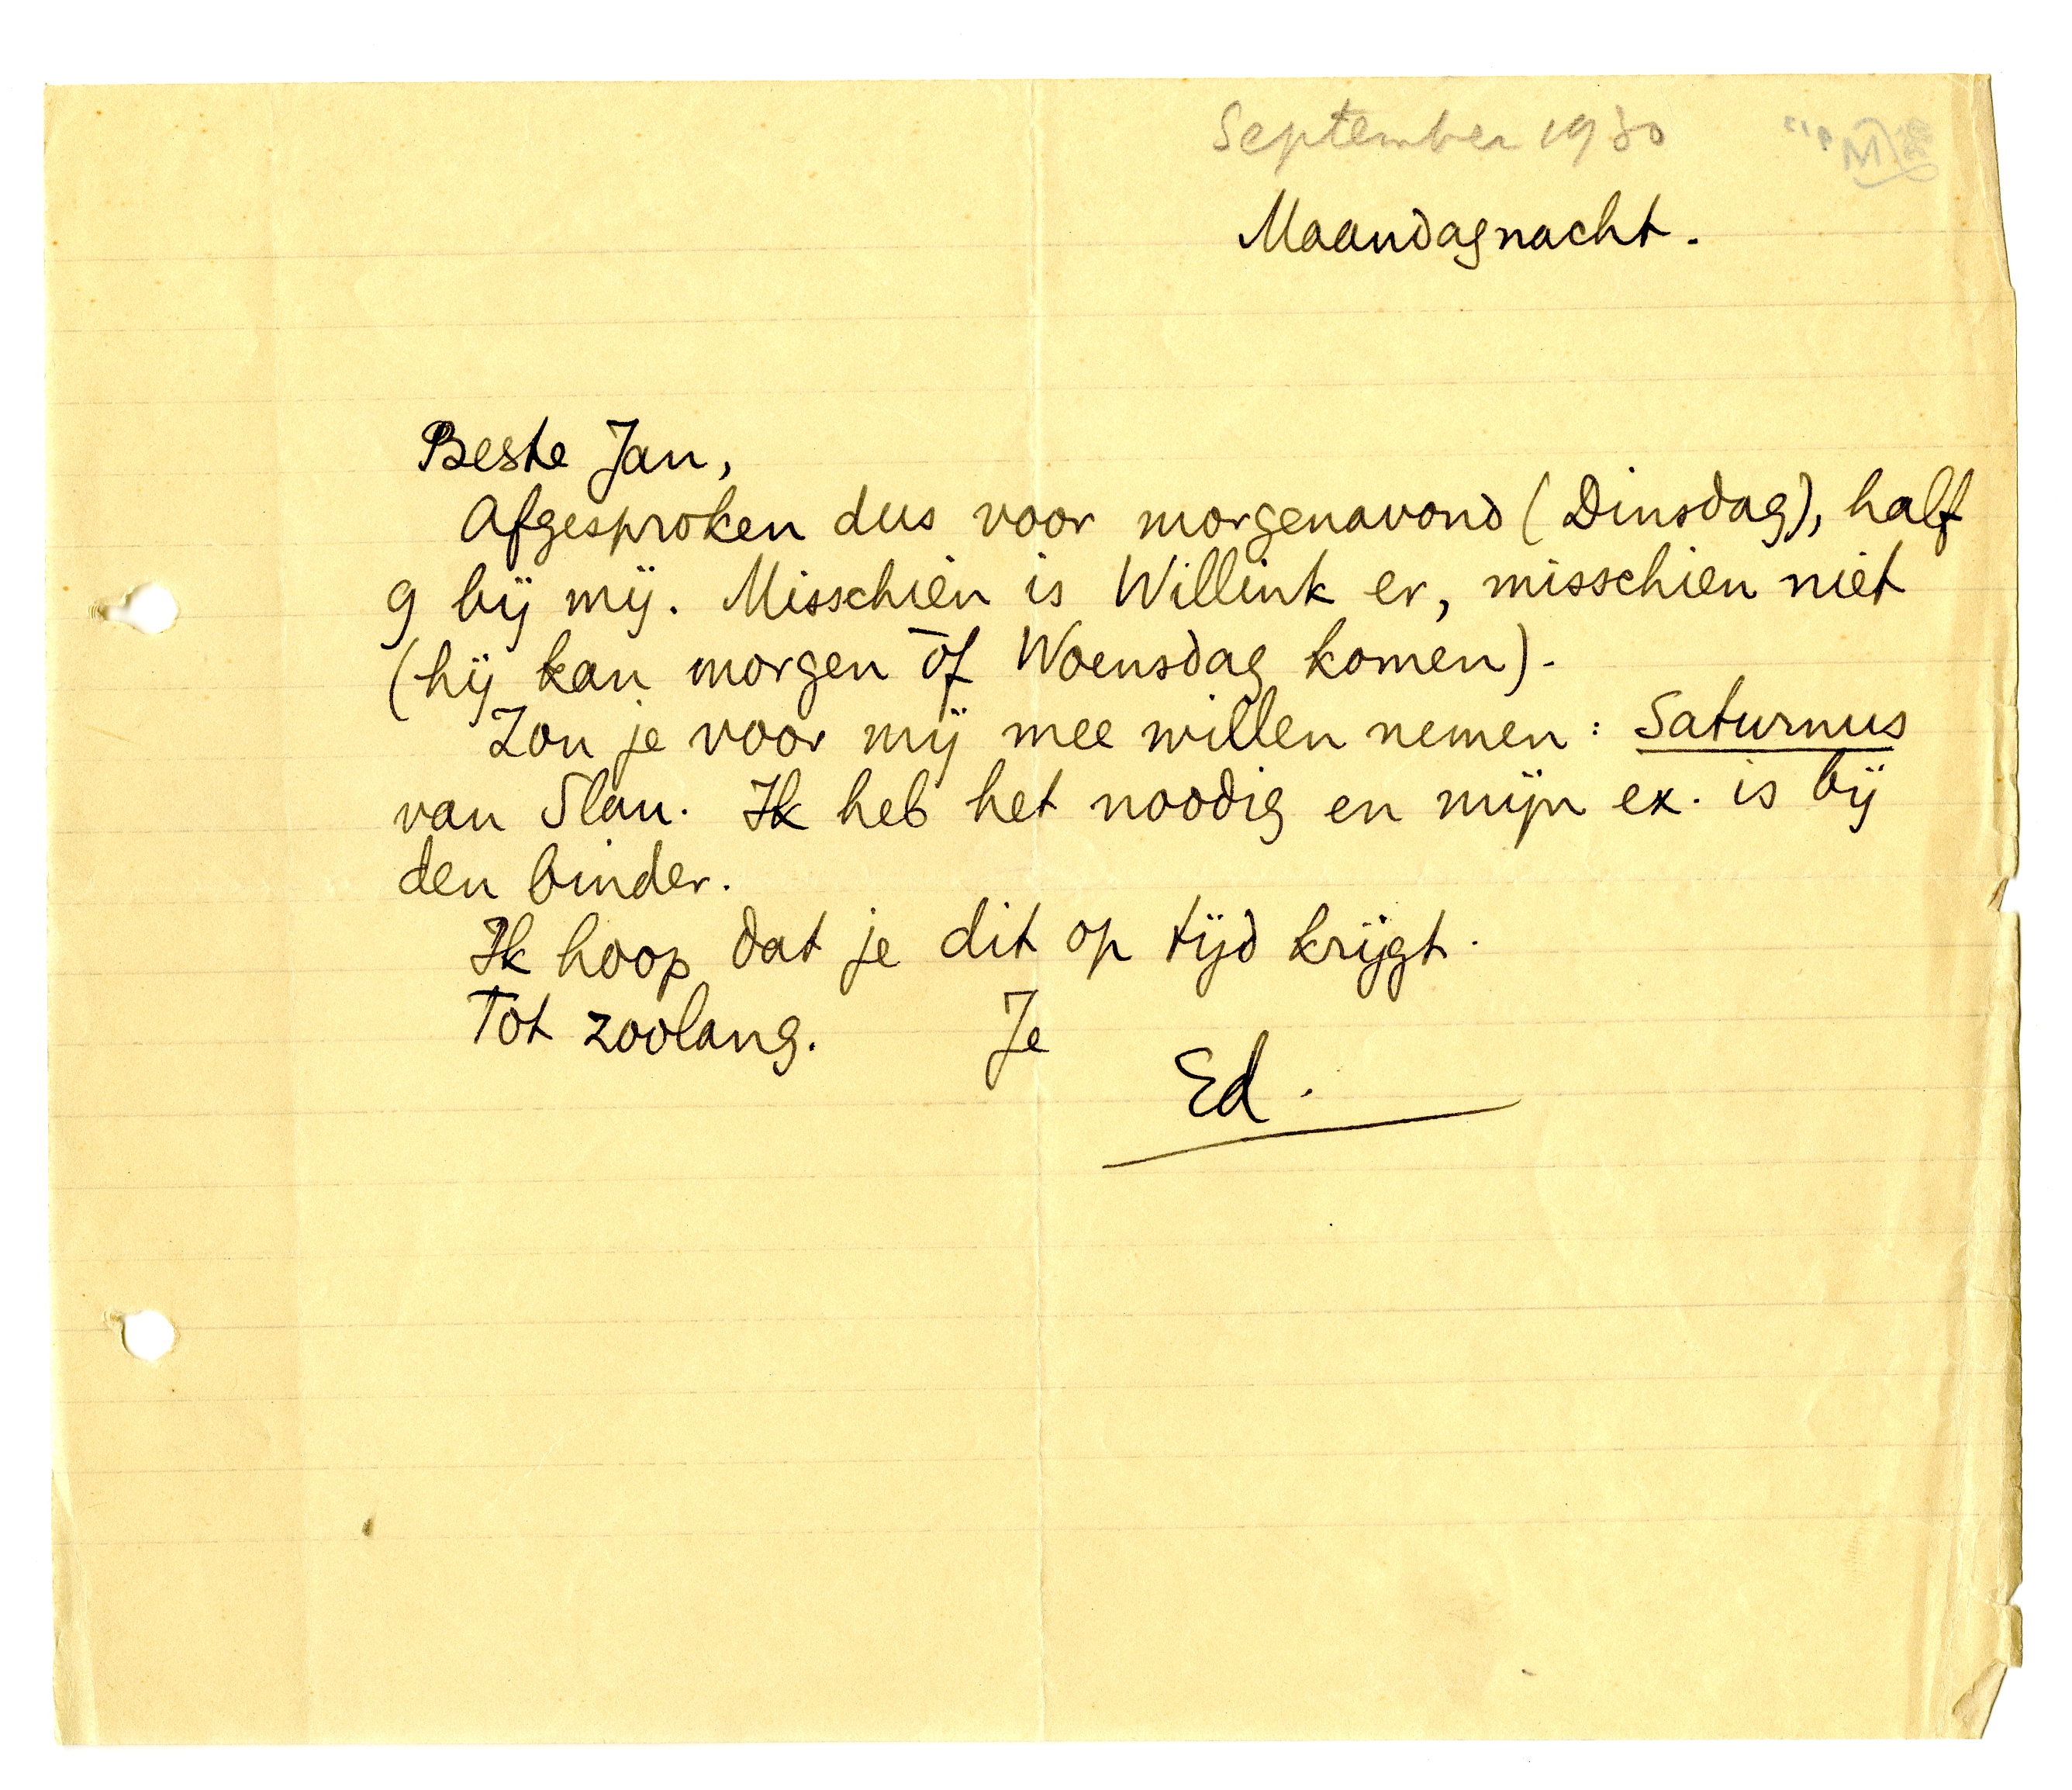 September 1930
Maandagnacht.
Beste Jan,
Afgesproken dus voor morgenavond (Dinsdag), half
9 bij mij. Misschien is Willink er, misschien niet
(hij kan morgen òf Woensdag komen).
Zou je voor mij mee willen nemen: Saturnus
van Slau. Ik heb het noodig en mijn ex. is bij
den binder.
Ik hoop dat je dit op tijd krijgt.
Tot zoolang. Je
Ed.